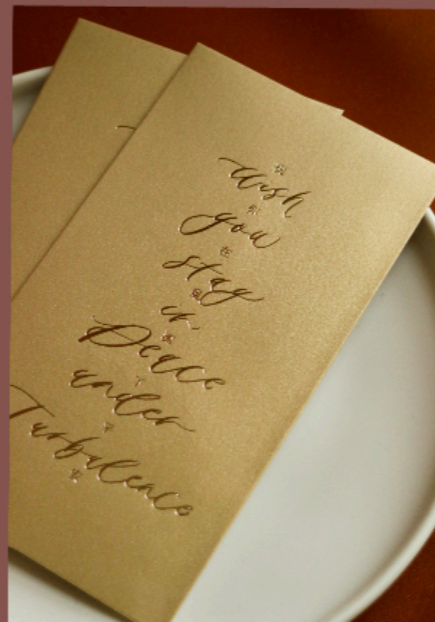 Wish
you
stay
in
Peace
under
Turbulence